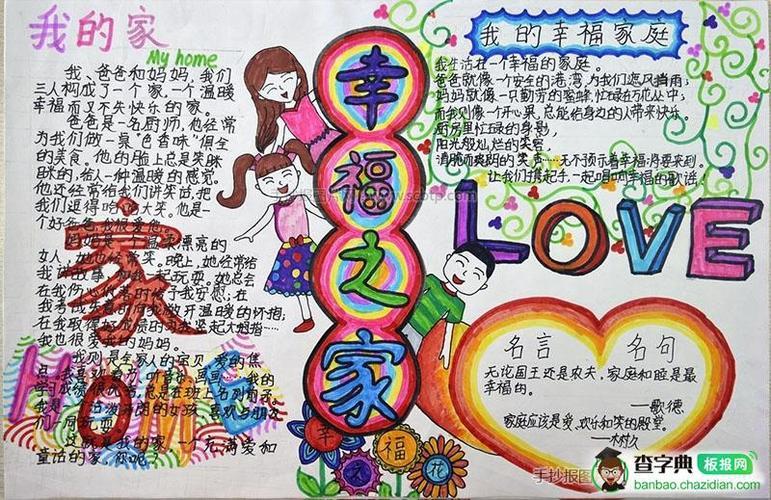 我的家
My home
我、爸爸和妈妈，我们
三人构成了一个家，一个温暖
幸福而又不失快乐的家。
爸爸是一名厨师，他经常
为我们做一桌“色香味”俱全
的美食。他的脸上总是笑眯
眯的，给人一种温暖的感觉。
他还经常给我们讲笑话，把
我们逗得哈哈大笑。他是一
个好爸爸，我很爱他。
妈妈是一个温柔漂亮的
女人，她也经常笑。晚上，她经常给
我讲故事，和我一起玩耍。她总会
在我伤心
给予我安慰；在
我考试
时向我敞开温暖的怀抱；
在我取得好成绩的
竖起大拇指……
我也很爱我的妈妈。
我则是全家人的宝贝
我喜欢
画画
我的
学习成绩很
总是在班上名列前茅。
我是一个活泼开朗的女孩，喜欢与朋友
们一同玩耍。
这就是我的家，一个充满爱和
童话的家，你呢？
家
HOME
幸福之家
幸福之花
我的幸福家庭
我生活在一个幸福的家庭。
爸爸就像一个安全的港湾，为我们遮风挡雨；
妈妈就像一只勤劳的蜜蜂，忙碌在万花丛中；
而我则像一个开心果，总能给身边的人带来快乐。
厨房里忙碌的身影，
阳光般灿烂的笑容，
清脆而爽朗的笑声……无不预示着幸福将要来到。
让我们携起手，一起唱响幸福的歌谣！
LOVE
名言 名句
无论国王还是农夫，家庭和睦是最
幸福的。
——歌德
家庭应该是爱、欢乐和笑的殿堂。
——木村久一
手抄报图
查字典 板报网
banbao.chazidian.com